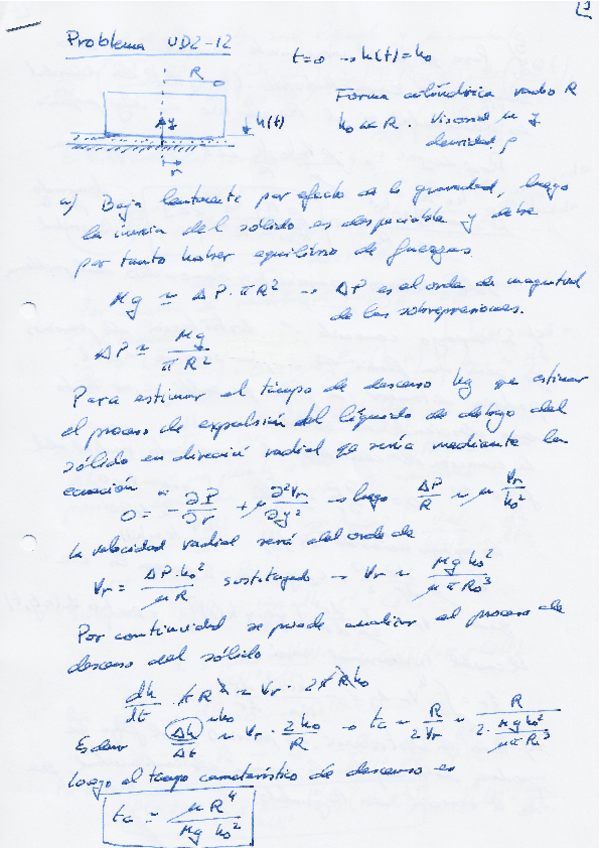 Problema UD2-12
t=0 → h(t)=h₀
R
Forma cilíndrica radio R
Δy h(t)
h₀ ≪ R. Viscosidad μ y
densidad ρ
r
a) Baja lentamente por efecto de la gravedad, luego
la inercia del sólido es despreciable y debe
por tanto haber equilibrio de fuerzas.
Mg ≃ ΔP·πR² → ΔP es el orden de magnitud
de las sobrepresiones.
ΔP ≃ Mg/πR²
Para estimar el tiempo de descenso hay que estimar
el proceso de expulsión del líquido de debajo del
sólido en dirección radial que sería mediante la
ecuación
0 = -∂P/∂r + μ ∂²Vr/∂y² → luego ΔP/R ~ μ Vr/h₀²
la velocidad radial será del orden de
Vr = ΔP·h₀²/μR sustituyendo → Vr ~ Mg h₀²/μπR₀³
Por continuidad se puede analizar el proceso de
descenso del sólido
dh/dt · πR² = Vr · 2πR h₀
Es decir Δh/Δt ~ Vr · 2h₀/R → tc ~ R/2Vr ~ R/(2·Mg h₀²/μπR³)
~h₀
luego el tiempo característico de descenso es
tc ≃ μR⁴/Mg h₀²